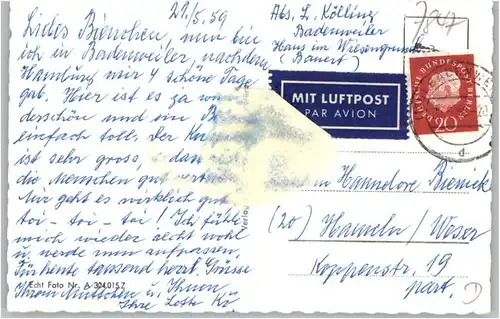 21/5.59
Liebes Bienchen, nun bin
ich in Badenweiler, nachdem
Hamburg mir 4 schöne Tage
gab. Hier ist es ja wun
derschön und ein B
einfach toll. Der Ku
ist sehr gross, dass
die Menschen gut ver
Mir geht es wirklich gut
toi - toi - toi! Ich fühle
mich wieder recht wohl
u. werde nun aufpassen.
Für heute tausend herzl. Grüsse
Ihrem Muttchen u. Ihnen,
Ihre Lotte Kö
Echt Foto Nr. A 304015Z
Verlag
Abs. L. Kölling
Badenweiler
Haus im Wiesengrund
(Banert)
MIT LUFTPOST
PAR AVION
DEUTSCHE BUNDESPOST BERLIN
20
d
Hannelore Bienick
(20) Hameln/Weser
Koppenstr. 19
part.